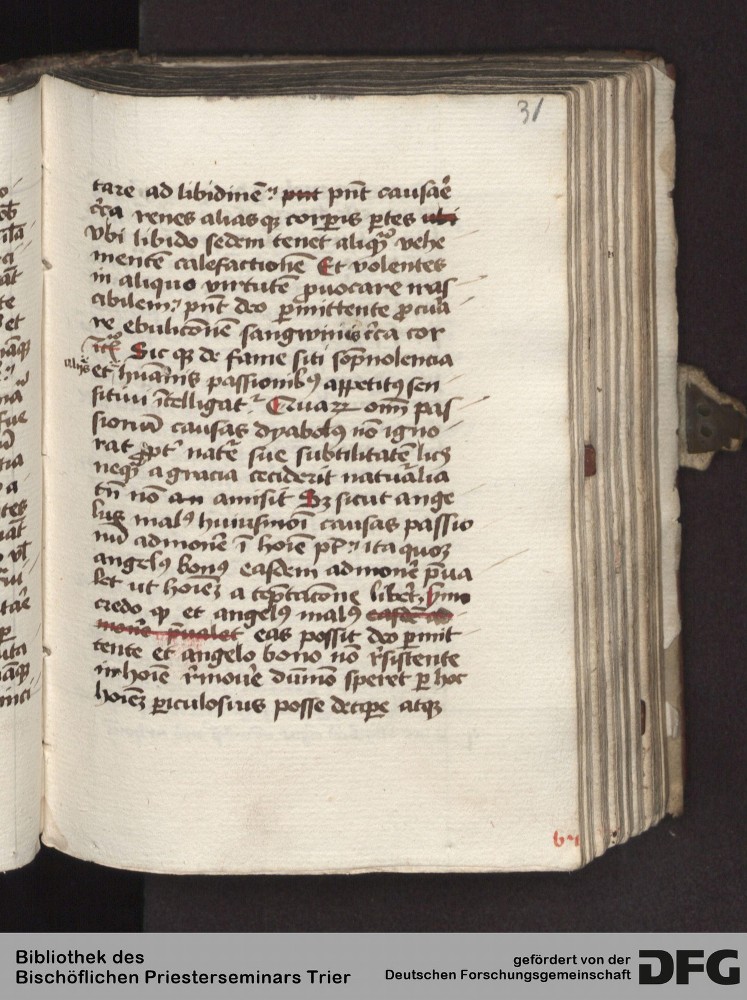 31
tare ad libidinē pn̄t causare
cc̄a renes aliasqꝫ corꝑis ꝑtes ubi
vbi libido sedem tenet aliqn̄ vehe
mentē calefactionē Et volentes
in aliquo virtutē ꝓuocare iras
cibilem pn̄t deo ꝑmittente ꝓcura
re ebuliconē sangwinis cc̄a cor
Sic qꝫ de fame siti sopnolencia
et humanis passionibꝰ appetitꝰ sen
sitiui intelligat Quarꝝ om̄i pas
sionum causas dyabolꝰ nō igno
rat ꝓpt natē sue subtilitatē licꝫ
neqꝫ a gracia ceciderit naturalia
tn̄ nō an amisit Sꝫ sicut ange
lus malꝰ huiusmōi causas passio
nū admouē ī hoīe pt ita quoqꝫ
angelꝰ bonꝰ easdem admouē p̄ua
let ut hoīeꝫ a teptacōne libet ymo
credo ꝙ et angelꝰ malꝰ easdē ad
mouē p̄ualet eas possit deo ꝑmit
tente et angelo bono nō rsistente
in hoīe rmouē dūmō speret ꝑ hoc
hoīeꝫ ꝑiculosius posse decipe atqꝫ
Bibliothek des
Bischöflichen Priesterseminars Trier
gefördert von der
Deutschen Forschungsgemeinschaft
DFG